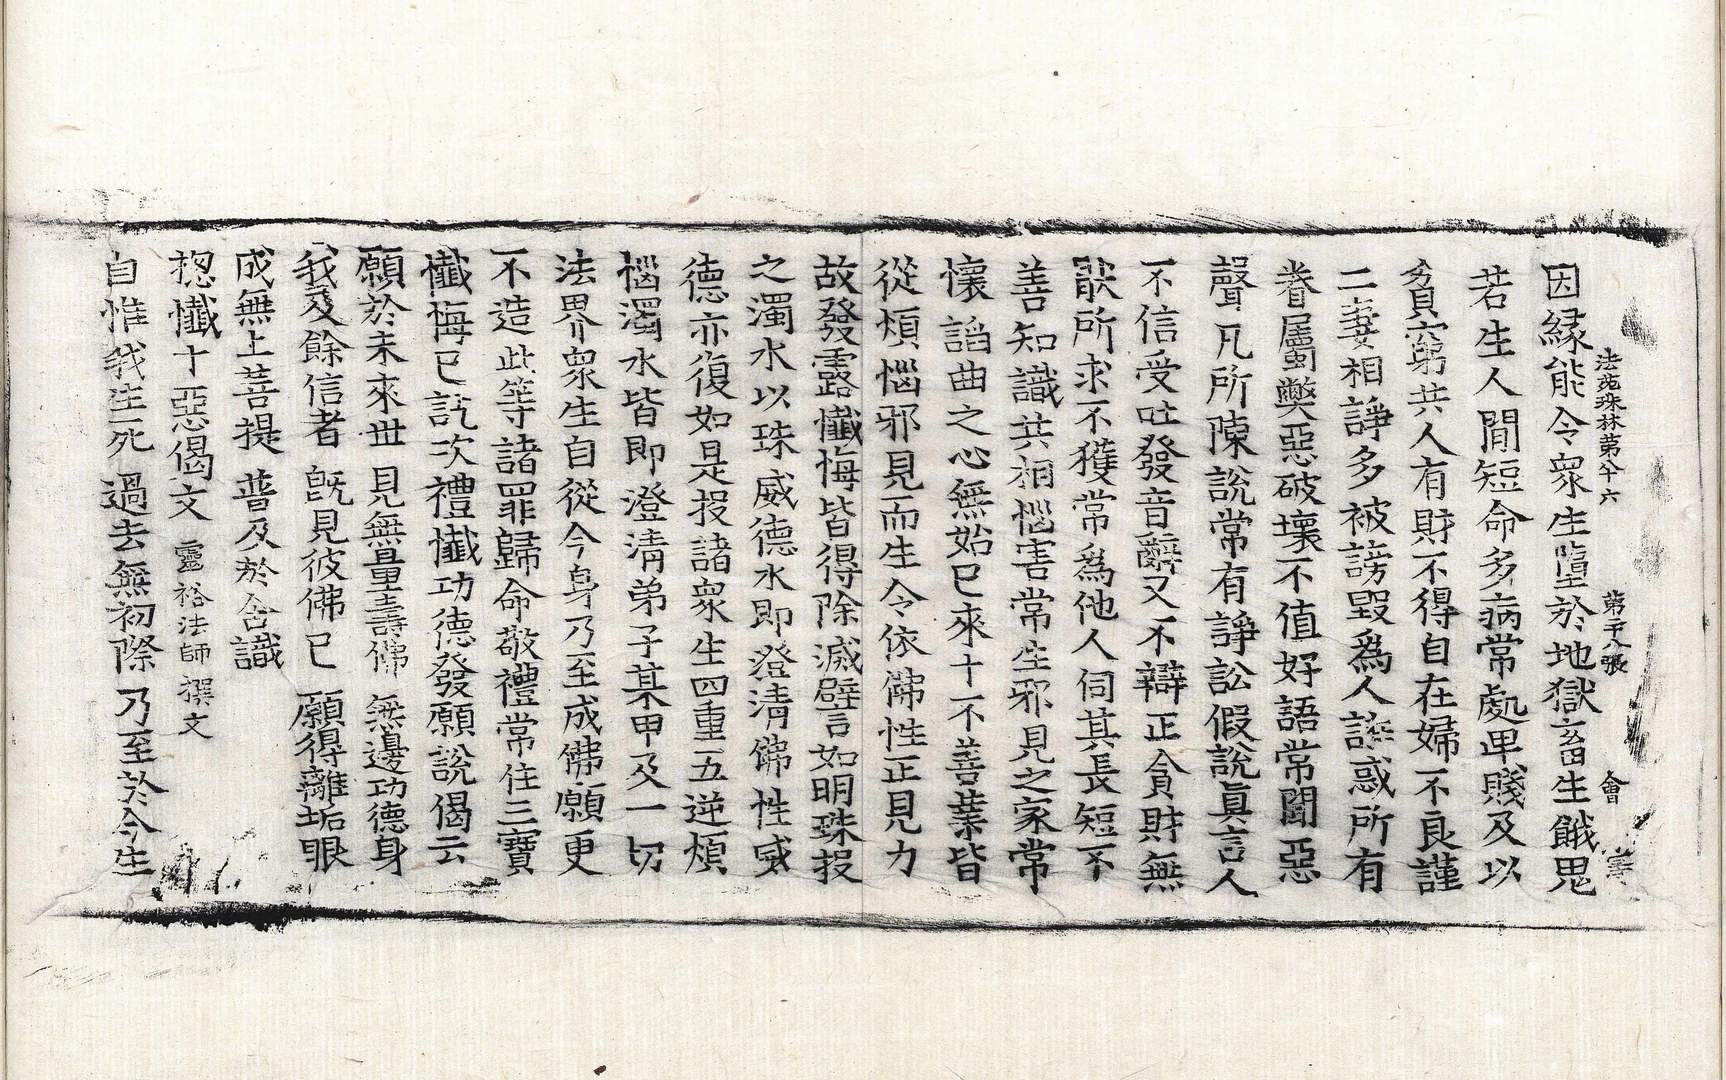 法苑珠林第八十六 第二十八張 會
因緣能令衆生墮於地獄畜生餓鬼
若生人間短命多病常處卑賤及以
貧窮共人有財不得自在婦不良謹
二妻相諍多被謗毀爲人誑惑所有
眷屬弊惡破壞不值好語常聞惡
聲凡所陳說常有諍訟假說眞言人
不信受吐發音辭又不辯正貪財無
猒所求不獲常爲他人伺其長短不
善知識共相惱害常生邪見之家常
懷諂曲之心無始已來十不善業皆
從煩惱邪見而生今依佛性正見力
故發露懺悔皆得除滅譬言如明珠投
之濁水以珠威德水即澄清佛性威
德亦復如是投諸衆生四重五逆煩
惱濁水皆即澄清弟子某甲及一切
法界衆生自從今身乃至成佛願更
不造此等諸罪歸命敬禮常住三寶
懺悔已訖次禮懺功德發願說偈云
願於未來世 見無量壽佛 無邊功德身
我及餘信者 旣見彼佛已 願得離垢眼
成無上菩提 普及於含識
揔懺十惡偈文 靈裕法師撰文
自惟我生死 過去無初際 乃至於今生